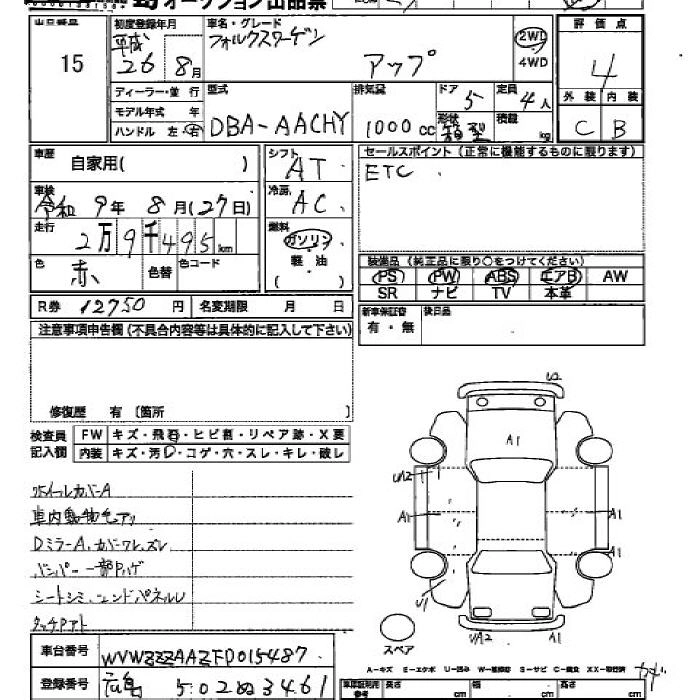 オークション出品票
出品番号 15
初度登録年月 平成 26年 8月
車名・グレード フォルクスワーゲン アップ
2WD
4WD
評価点 4
外装 内装
C B
ディーラー・並行
モデル年式 年
ハンドル 左・右
型式 DBA-AACHY
排気量 1000cc
ドア 5
形状 箱型
定員 4人
積載 kg
車歴 自家用( )
車検 令和 9年 8月(27日)
走行 2万9千495km
色 赤 色替 色コード
シフト AT
冷房 AC
燃料 ガソリン
軽・油
セールスポイント (正常に機能するものに限ります)
ETC
装備品 (純正品に限り○をつけてください)
PS PW ABS エアB AW
SR ナビ TV 本革
R券 12750円 名変期限 月 日
新車保証書 有・無
後日品
注意事項申告欄(不具合内容等は具体的に記入して下さい)
修復歴 有 〔箇所 〕
検査員記入欄
FW キズ・飛石・ヒビ割・リペア跡・X要
内装 キズ・汚・コゲ・穴・スレ・キレ・破レ
ホイールカバーA
車内動物毛アリ
Dミラー A、カバーワレ、ズレ
バンパー 一部ハゲ
シートシミ、エンドパネルU
タッチアト
車台番号 WVWZZZAAZFD015487
登録番号 広島 502ぬ3461
U2
A1
UA2
A1
A1
U1
UA2
A1
スペア
A-キズ E-エクボ U-凹み W-補修跡 S-サビ C-腐食 XX-交換済
車庫証明用参考
長さ cm
幅 cm
高さ cm